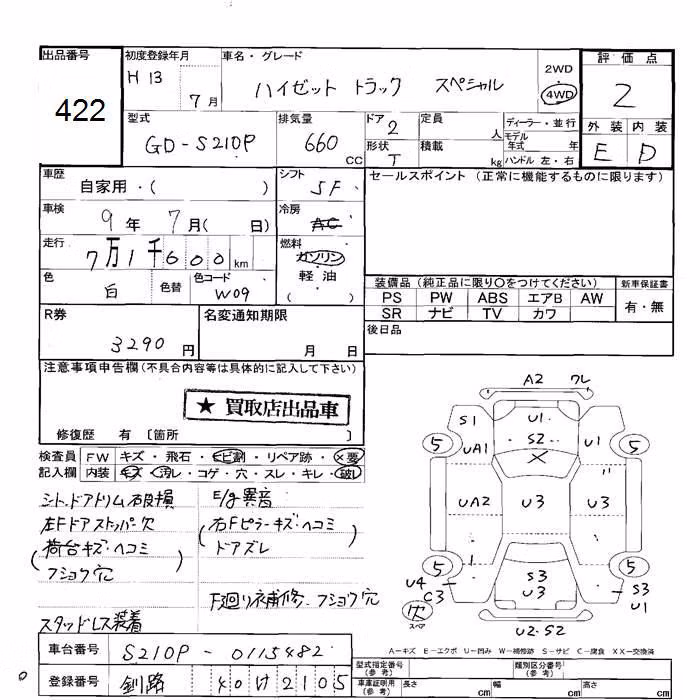 出品番号
422
初度登録年月
H 13
7 月
車名・グレード
ハイゼット トラック スペシャル
2WD
4WD
評価点
2
型式
GD-S210P
排気量
660 CC
ドア 2
形状 T
定員 人
積載 kg
ディーラー・並行
モデル年式 年
ハンドル 左・右
外装 内装
E D
車歴
自家用・( )
シフト
5F
セールスポイント (正常に機能するものに限ります)
車検
9 年 7 月( 日)
冷房
AC
走行
7万1千600 km
燃料
ガソリン
軽油
( )
色
白
色替
色コード
W09
装備品 (純正品に限り○をつけてください)
PS PW ABS エアB AW
SR ナビ TV カワ
新車保証書
有・無
後日品
R券
3290 円
名変通知期限
月 日
注意事項申告欄 (不具合内容等は具体的に記入して下さい)
★ 買取店出品車
修復歴 有 [箇所 ]
検査員記入欄
FW キズ・飛石・ヒビ割・リペア跡・×要
内装 キズ・汚レ・コゲ・穴・スレ・キレ・破レ
シート.ドアトリム破損
左Fドアストッパー穴
(荷台キズ・ヘコミ
フショク穴)
スタッドレス装着
E/g異音
(右Fピラーキズ・ヘコミ
ドアズレ)
F廻り補修、フショク穴
A2 ワレ
S1 U1
5 UA1 S2 U1 5
×
UA2 U3 U3
5 5
U4 S3 S3
C3 U3 U1
穴
スペア
U2・S2
A－キズ E－エクボ U－凹み W－補修跡 S－サビ C－腐食 XX－交換済
車台番号
S210P-0115482
登録番号
釧路 40 け 2105
型式指定番号(参考)
類別区分番号(参考)
車庫証明用(参考)
長さ cm
幅 cm
高さ cm